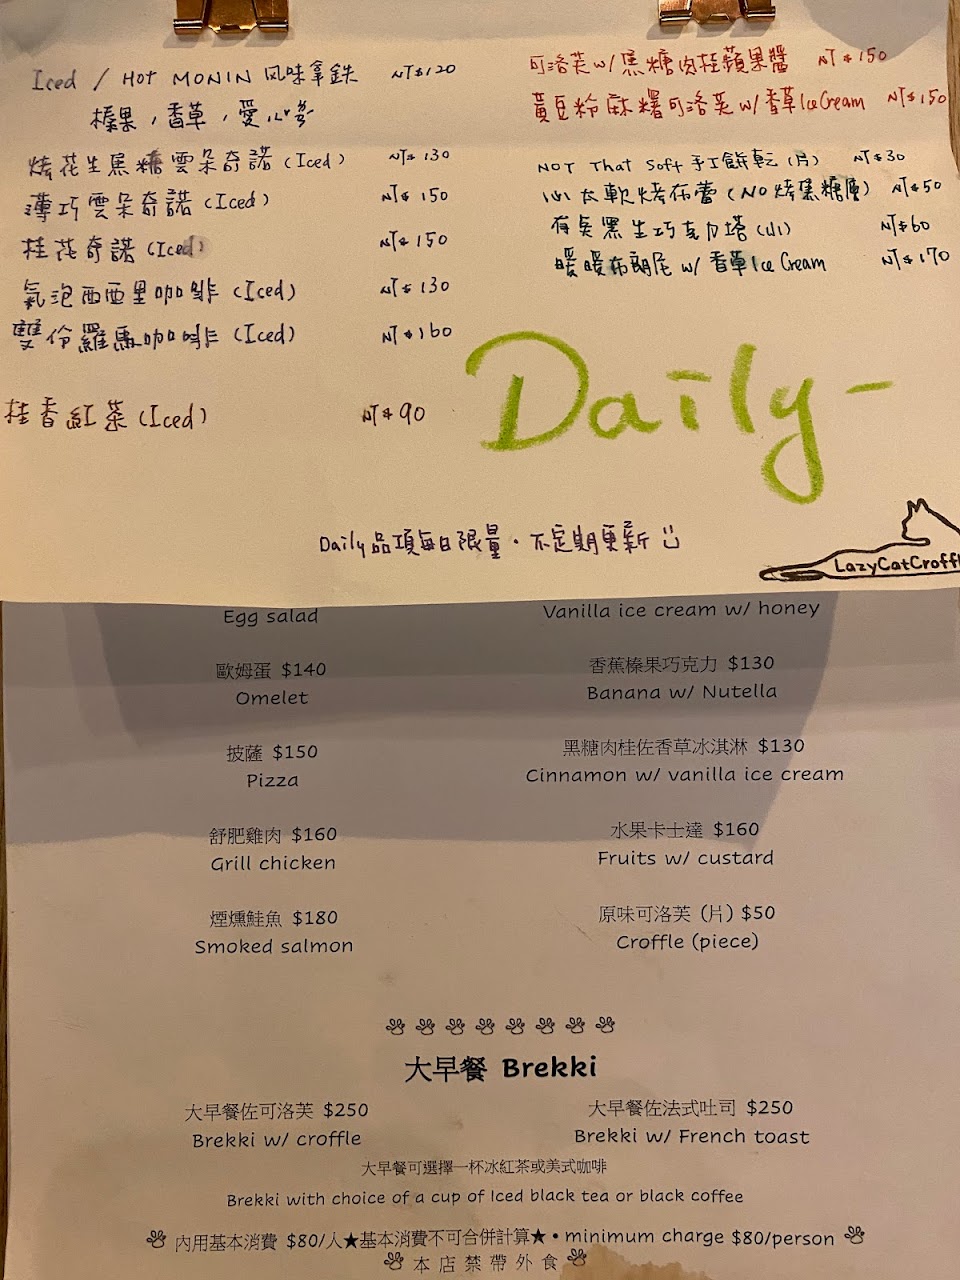 Iced / Hot MONIN 风味拿鉄 NT$120
榛果，香草，愛心
烤花生焦糖雲朵奇諾 (Iced) NT$ 130
薄巧雲朵奇諾 (Iced) NT$ 150
桂花奇諾 (Iced) NT$ 150
氣泡西西里咖啡 (Iced) NT$ 130
雙份羅馬咖啡 (Iced) NT$ 160
桂香紅茶 (Iced) NT$ 90
可洛芙 w/ 焦糖肉桂蘋果醬 NT$ 150
黃豆粉麻糬可洛芙 w/ 香草 Ice Cream NT$ 150
NOT That Soft 手工餅乾 (片) NT$ 30
心太軟烤布蕾 (NO 烤焦糖層) NT$50
有臭黑生巧克力塔 (小) NT$60
暖暖布朗尼 w/ 香草 Ice Cream NT$ 170
Daily-
Daily品項每日限量・不定期更新
LazyCatCroffl
Egg salad
歐姆蛋 $140
Omelet
披薩 $150
Pizza
舒肥雞肉 $160
Grill chicken
煙燻鮭魚 $180
Smoked salmon
Vanilla ice cream w/ honey
香蕉榛果巧克力 $130
Banana w/ Nutella
黑糖肉桂佐香草冰淇淋 $130
Cinnamon w/ vanilla ice cream
水果卡士達 $160
Fruits w/ custard
原味可洛芙 (片) $50
Croffle (piece)
大早餐 Brekki
大早餐佐可洛芙 $250
Brekki w/ croffle
大早餐佐法式吐司 $250
Brekki w/ French toast
大早餐可選擇一杯冰紅茶或美式咖啡
Brekki with choice of a cup of Iced black tea or black coffee
內用基本消費 $80/人★基本消費不可合併計算★・minimum charge $80/person
本店禁帶外食